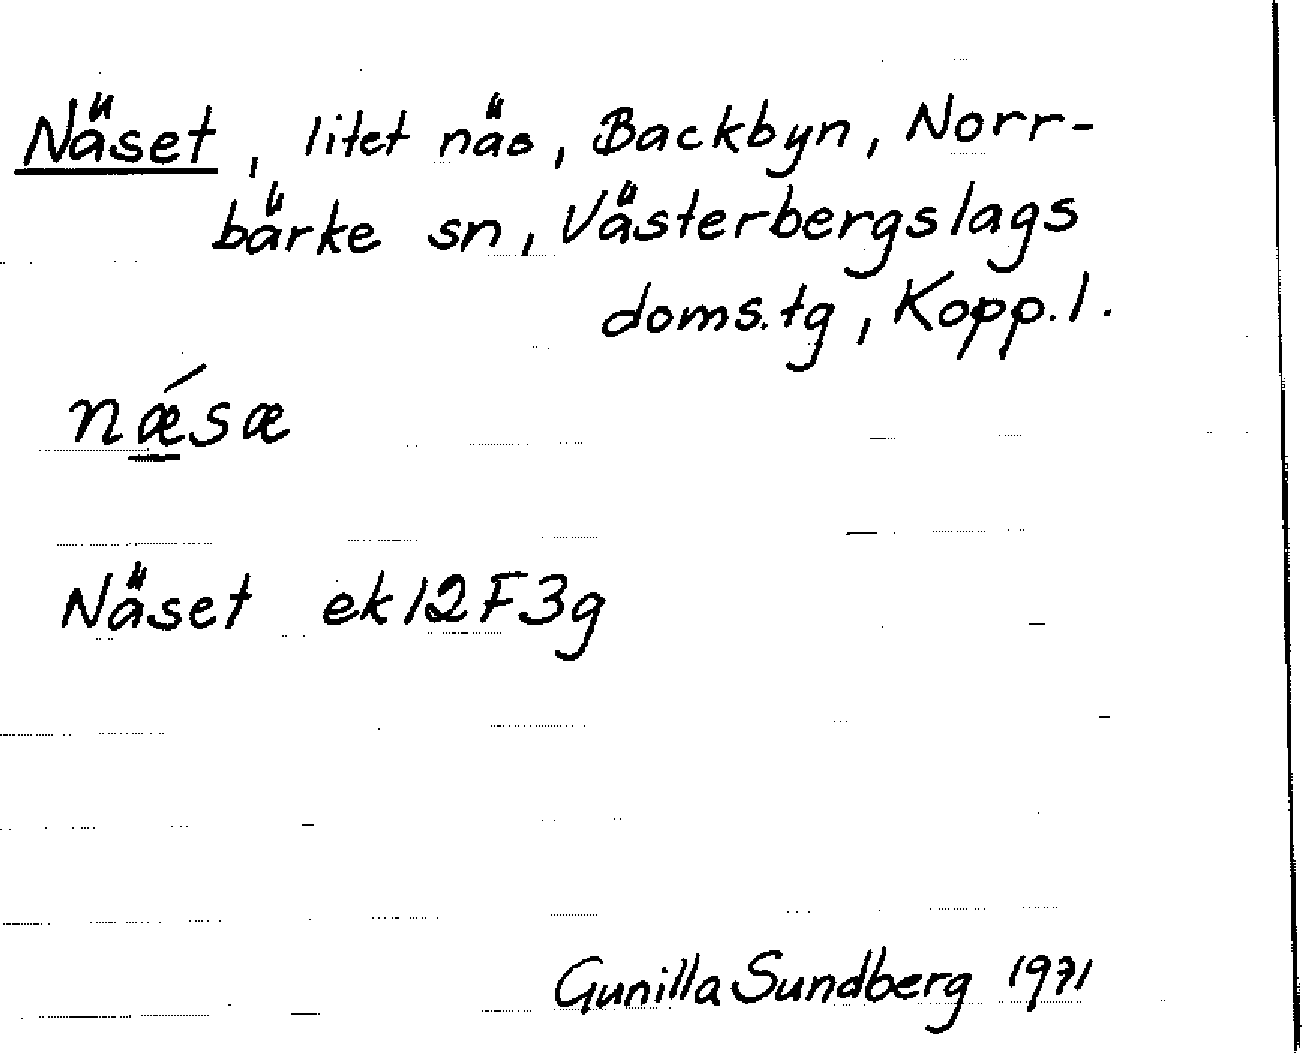 Näset, litet näs, Backbyn, Norr-
bärke sn, Västerbergslags
doms.tg, Kopp.l.
nǽ̲sæ
Näset ek12F3g
Gunilla Sundberg 1971